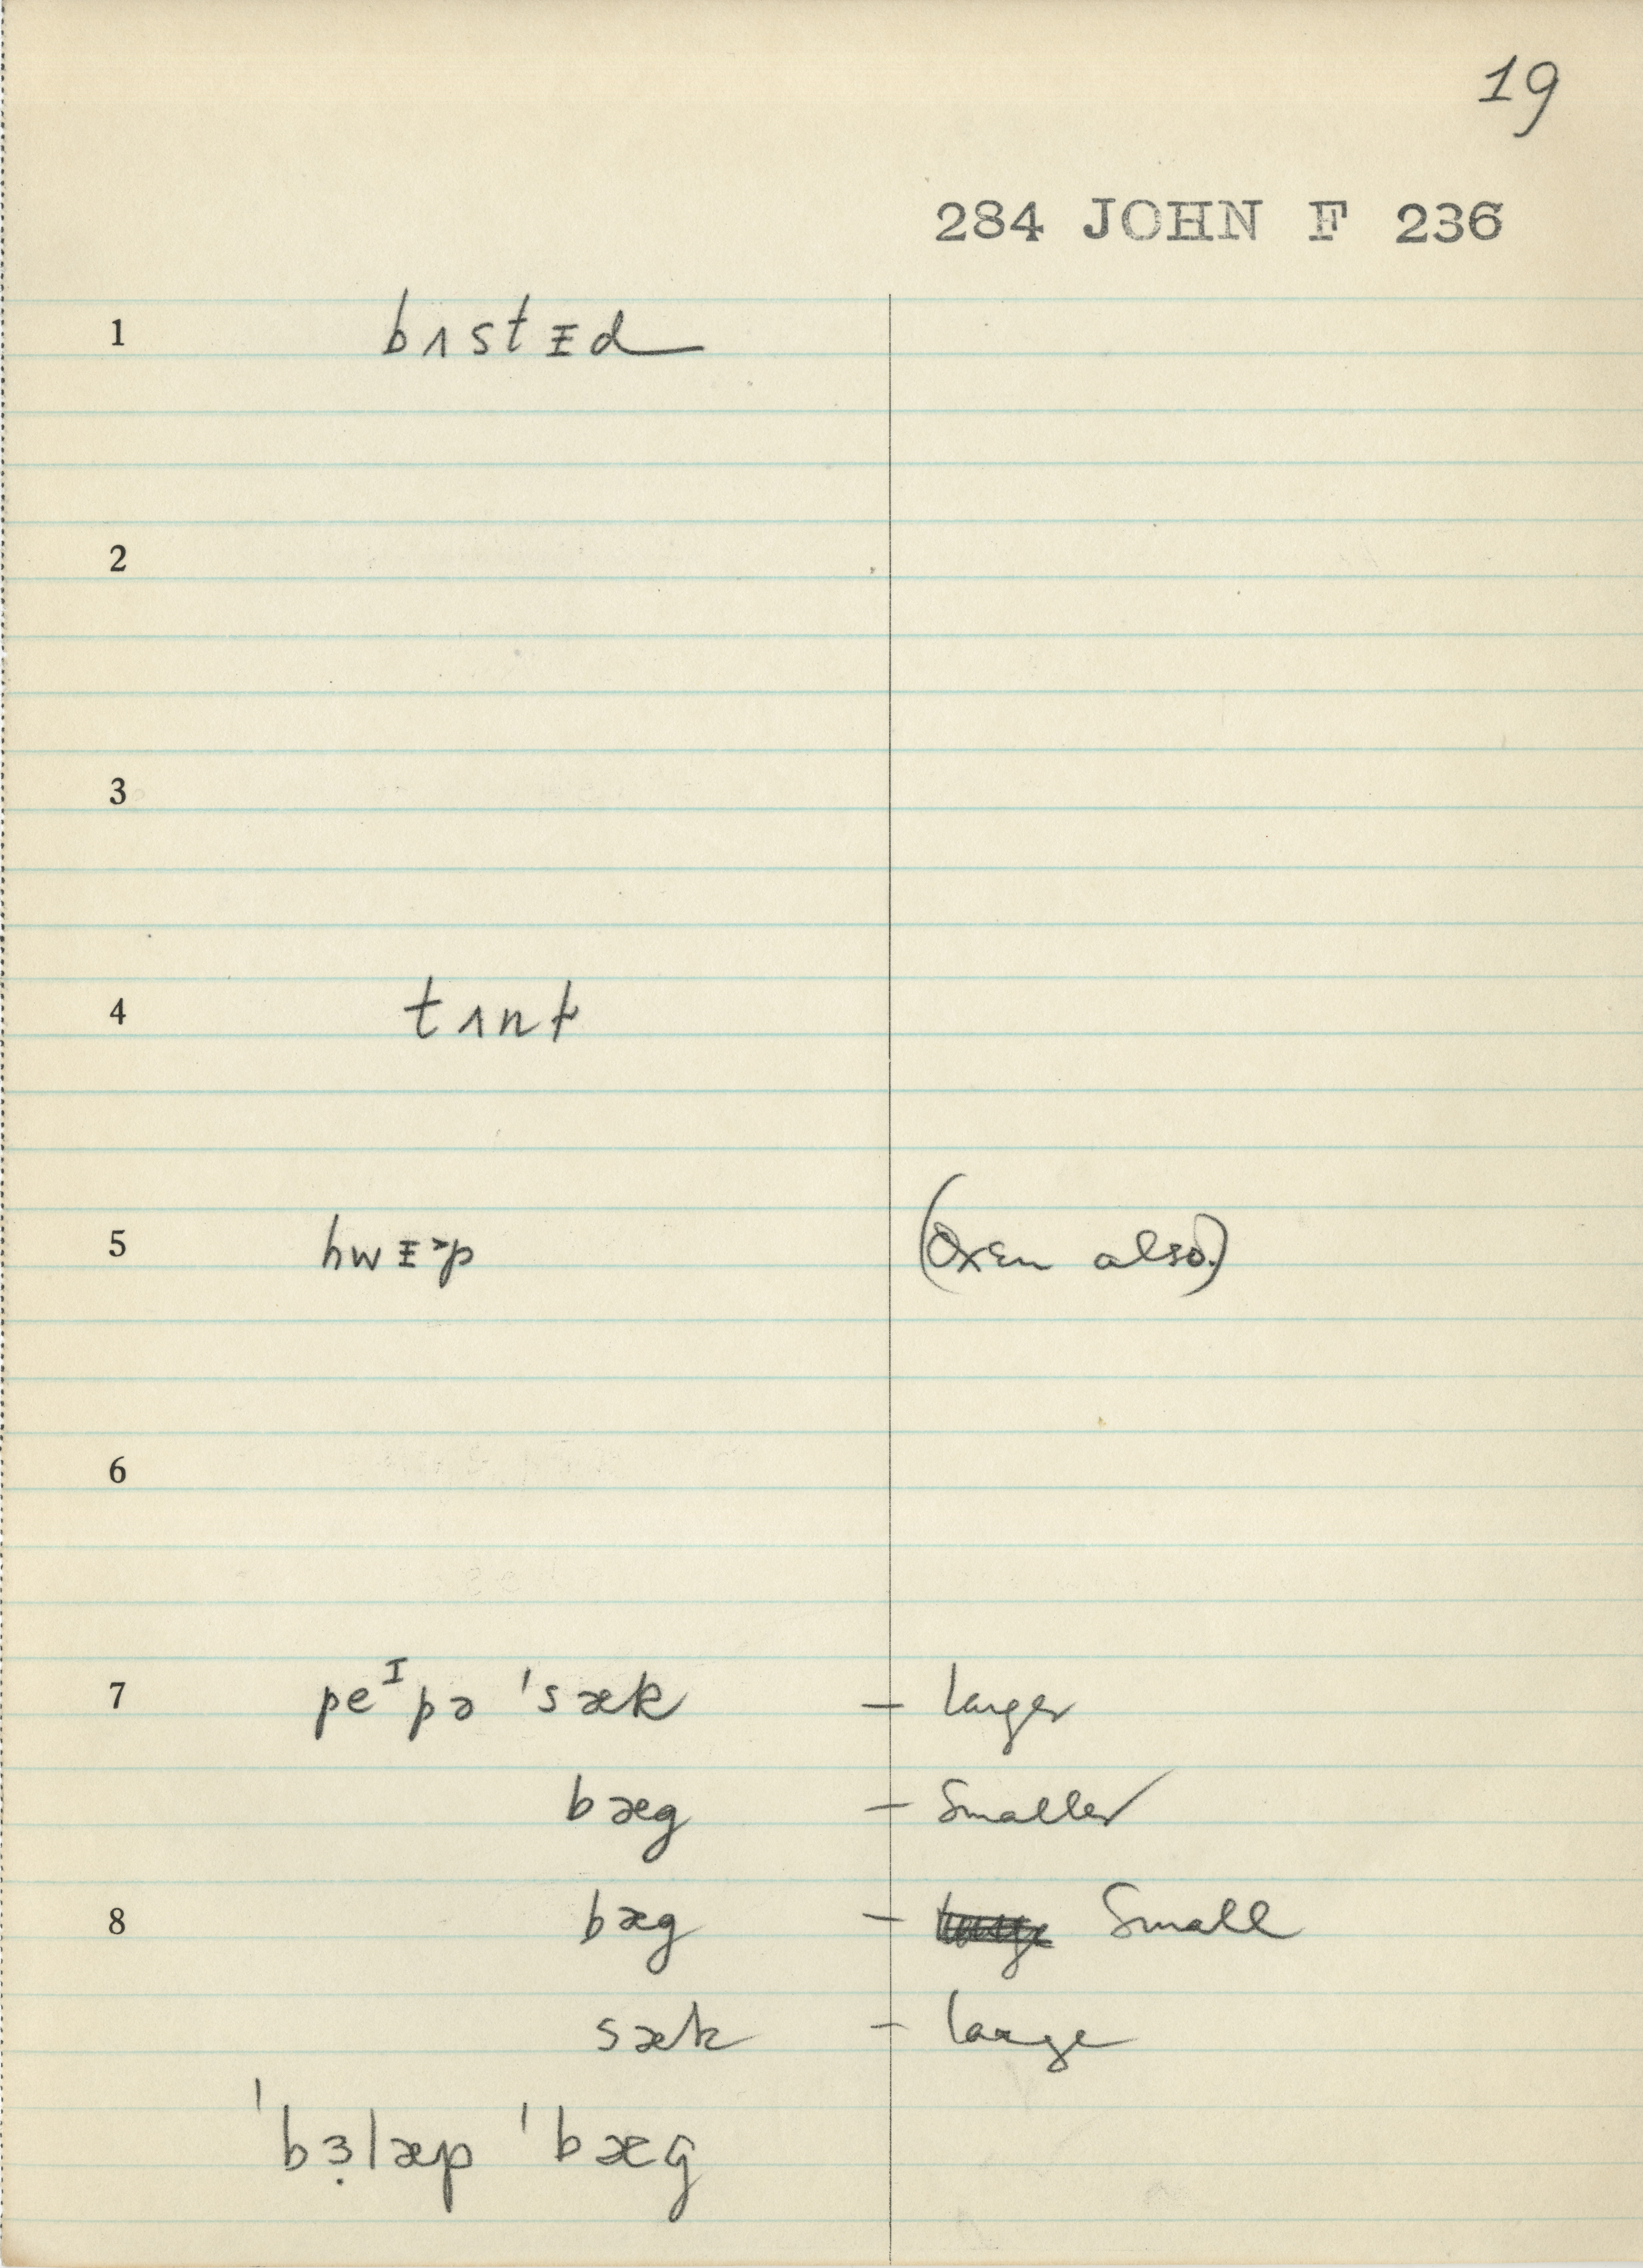 19
284 JOHN F 236
1 bʌstᵻd
2
3
4 tʌnt
5 hwᵻ˃p (Oxen also.)
6
7 peᴵpə ˈsæk – larger
bæg – Smaller
8 bæg – Small
sæk – large
ˈbɜ̣læp ˈbæg